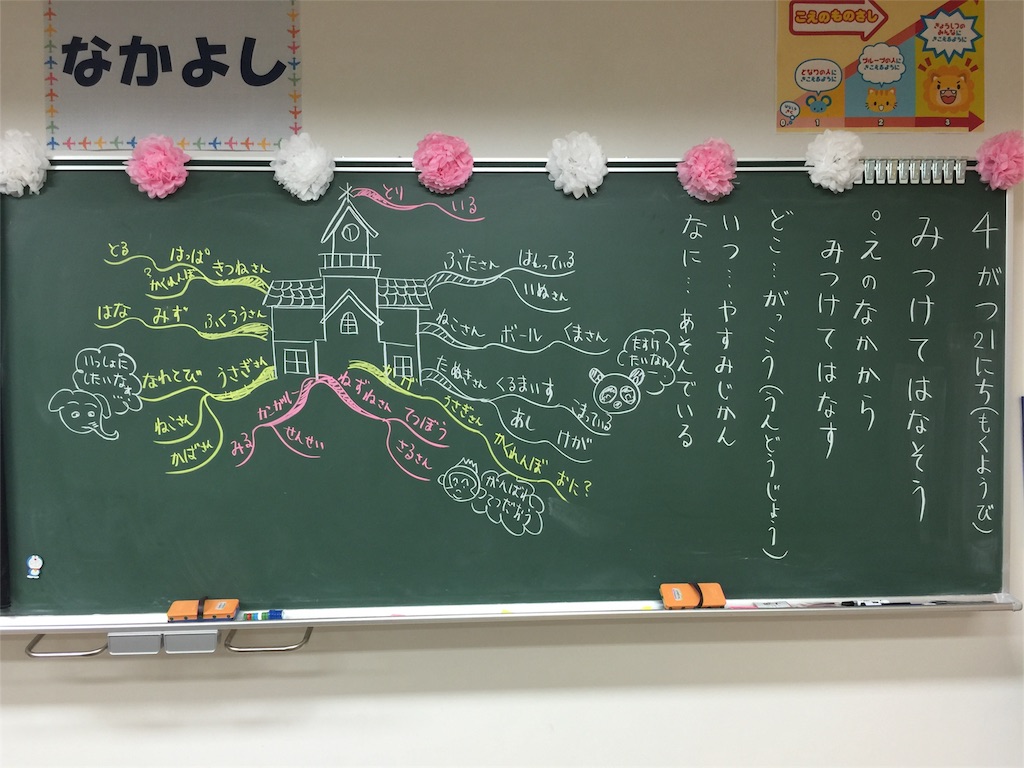 なかよし
こえのものさし
となりの人に
きこえるように
グループの人に
きこえるように
きょうしつの
みんなに
きこえるように
0
1
2
3
4がつ21にち(もくようび)
みつけてはなそう
えのなかから
みつけてはなす
どこ…がっこう(うんどうじょう)
いつ…やすみじかん
なに…あそんでいる
とり いる
とる はっぱ きつねさん
?かくれんぼ
はな みず ふくろうさん
なわとび うさぎさん
ねこさん
かばさん
いっしょに
したいなあ
カンガルー
みる
せんせい
ねずみさん てつぼう
さるさん
うさぎさん かくれんぼ おに?
がんばれ
てつだおう
ぶたさん はしっている
いぬさん
ねこさん ボール くまさん
たぬきさん くるまいす こまっている
あし けが
たすけ
たいなあ